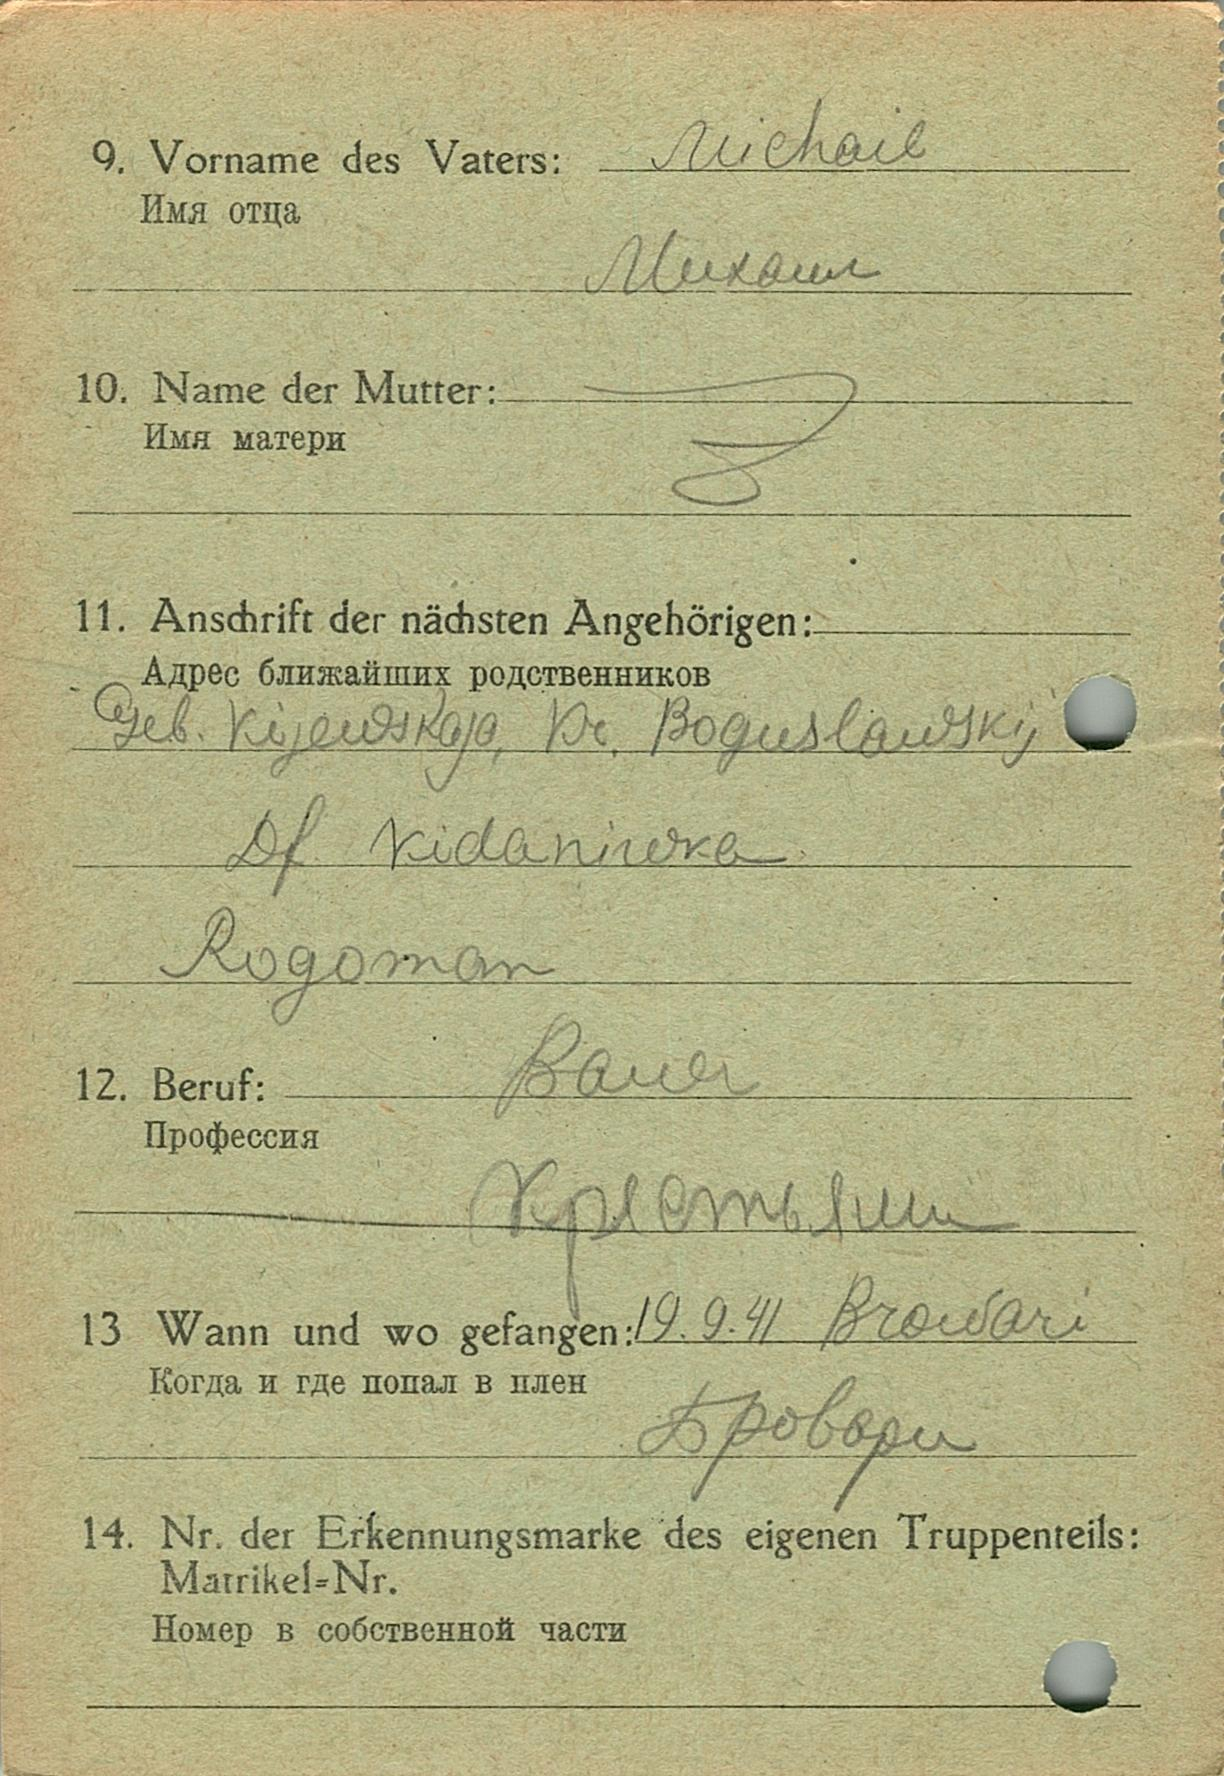 9. Vorname des Vaters: Michail
Имя отца
Михаил
10. Name der Mutter:
Имя матери
11. Anschrift der nächsten Angehörigen:
Адрес ближайших родственников
Geb. Kijewskaja, Kr. Boguslawskij
Df Kidaniwka
Rogoman
12. Beruf: Bauer
Профессия
13 Wann und wo gefangen: 19.9.41 Browari
Когда и где попал в плен
Бровари
14. Nr. der Erkennungsmarke des eigenen Truppenteils:
Matrikel=Nr.
Номер в собственной части